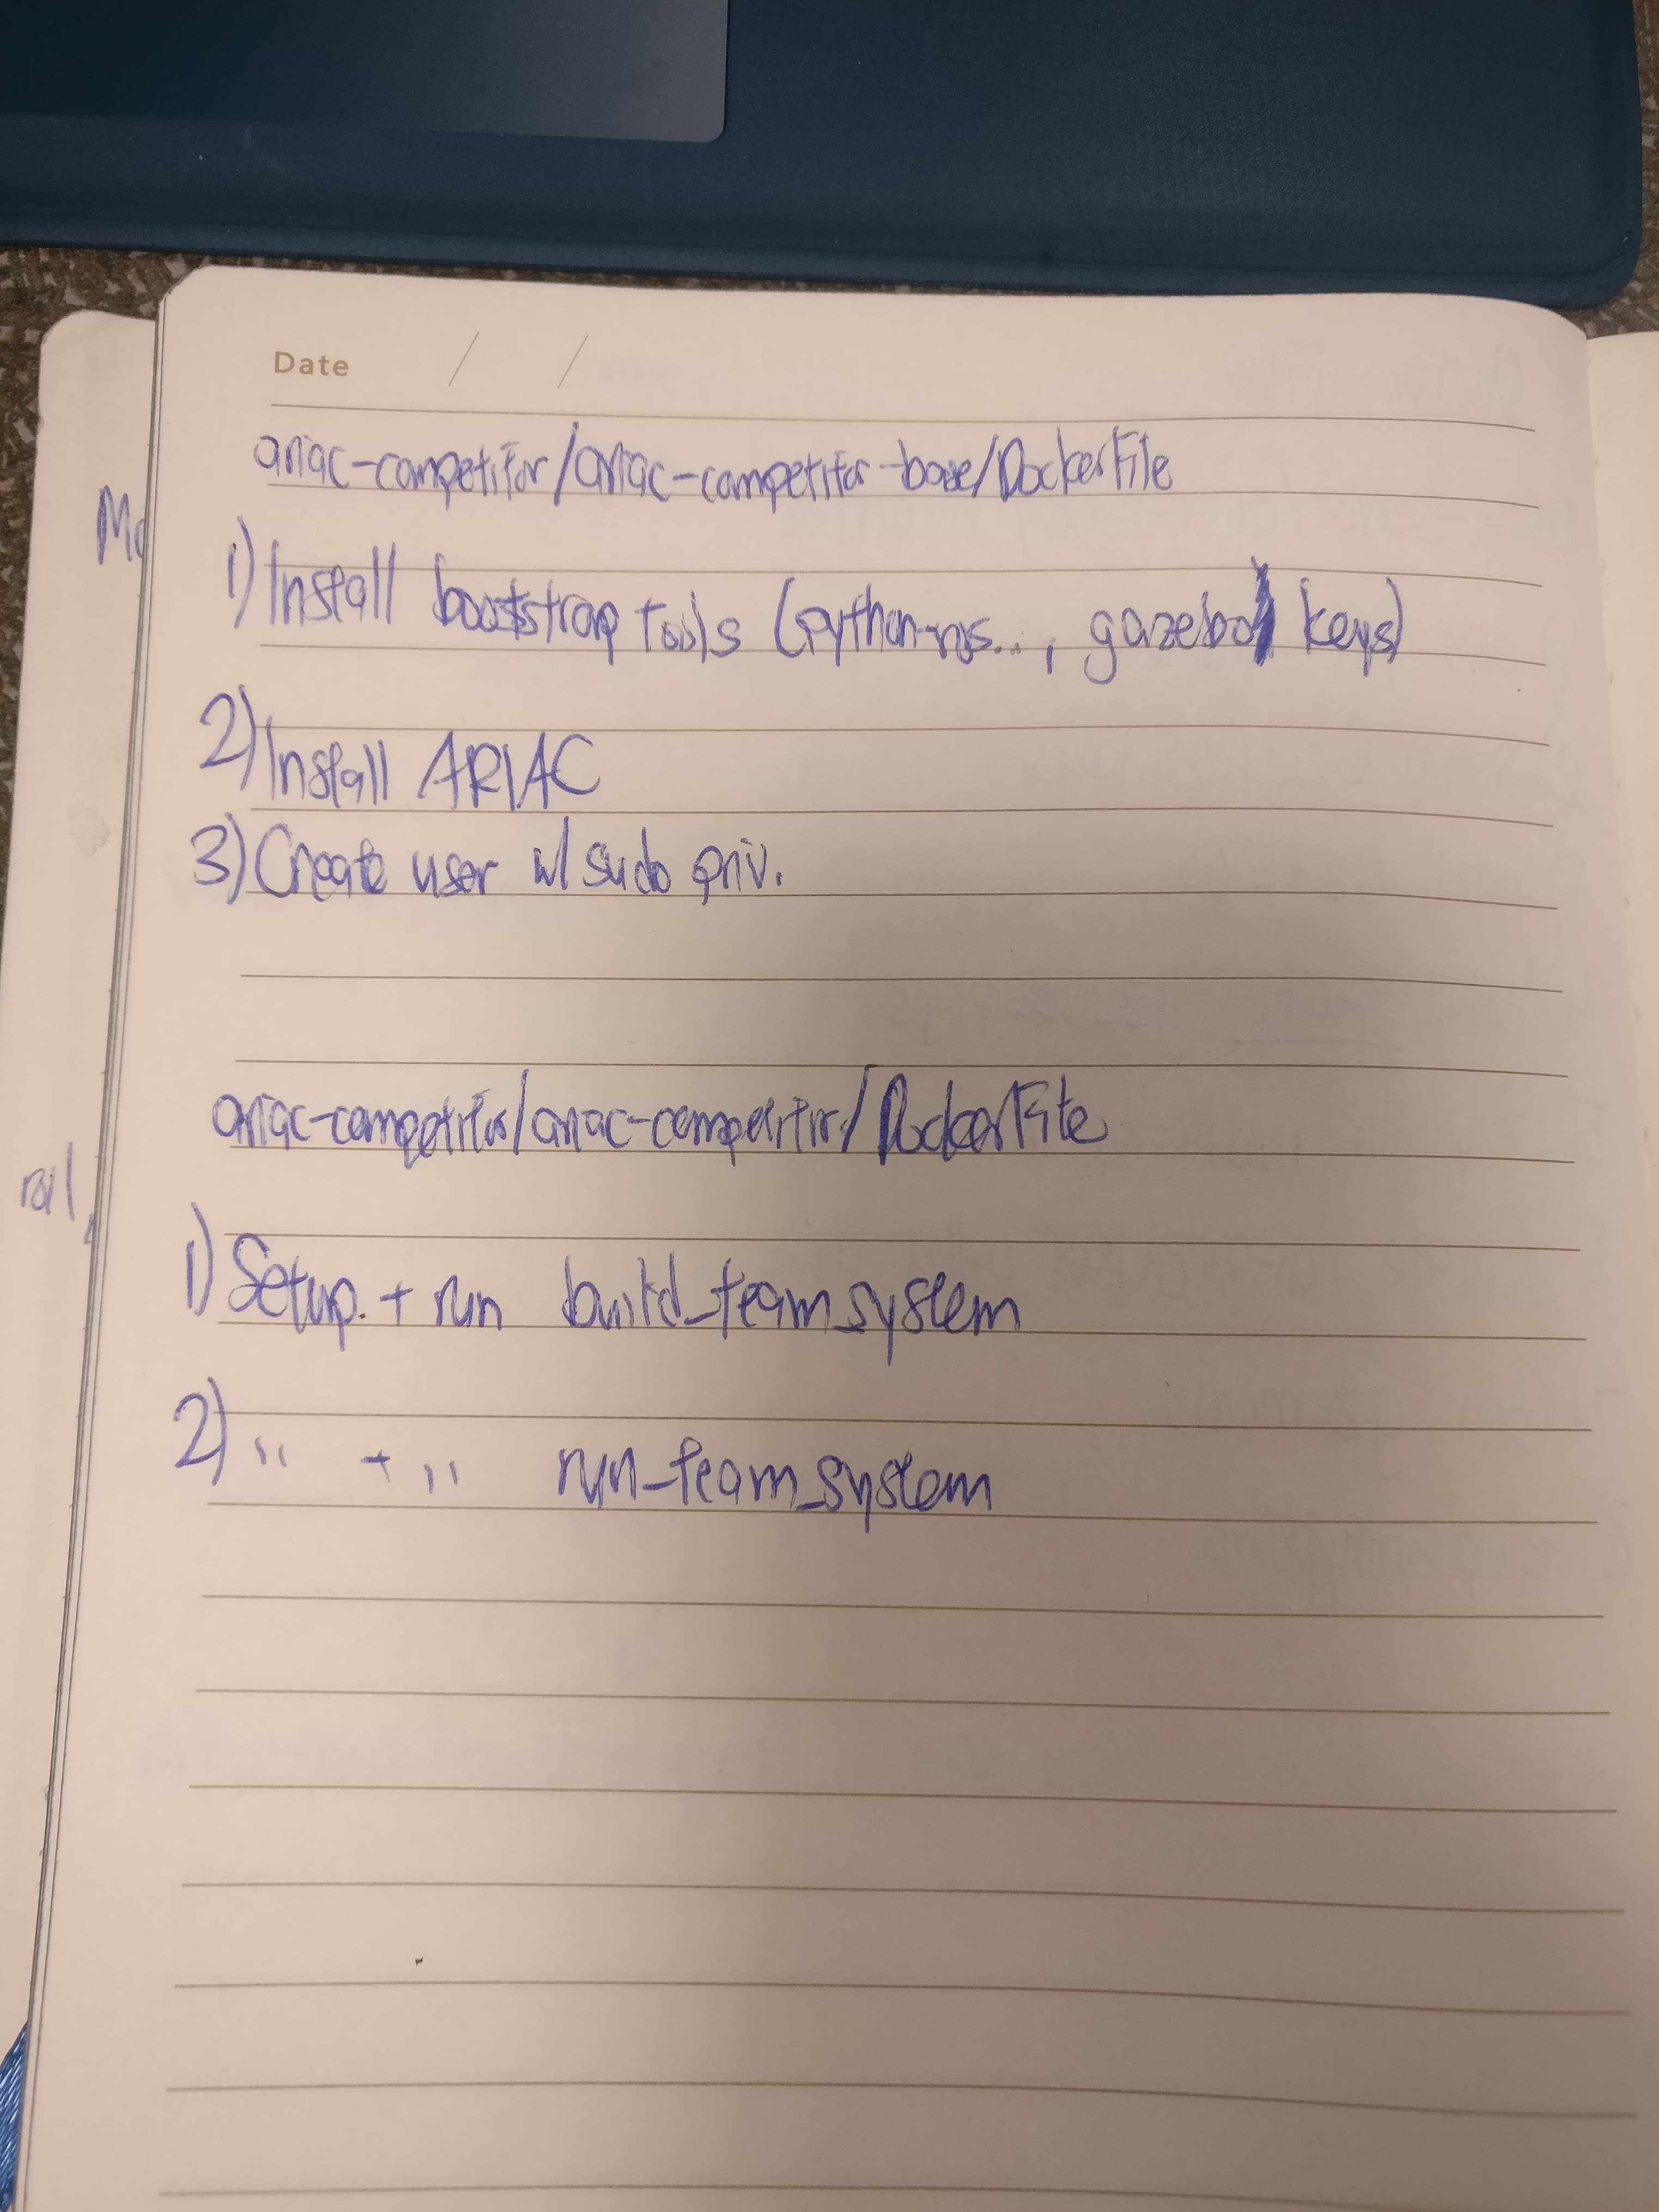 Date / /
ariac-competitor/ariac-competitor-base/DockerFile
1) Install bootstrap tools (python-ros..., gazebo keys)
2) Install ARIAC
3) Create user w/ sudo priv.
ariac-competitor/ariac-competitor/DockerFile
1) Setup + run build_team_system
2) " + " run_team_system
Mo
rail,